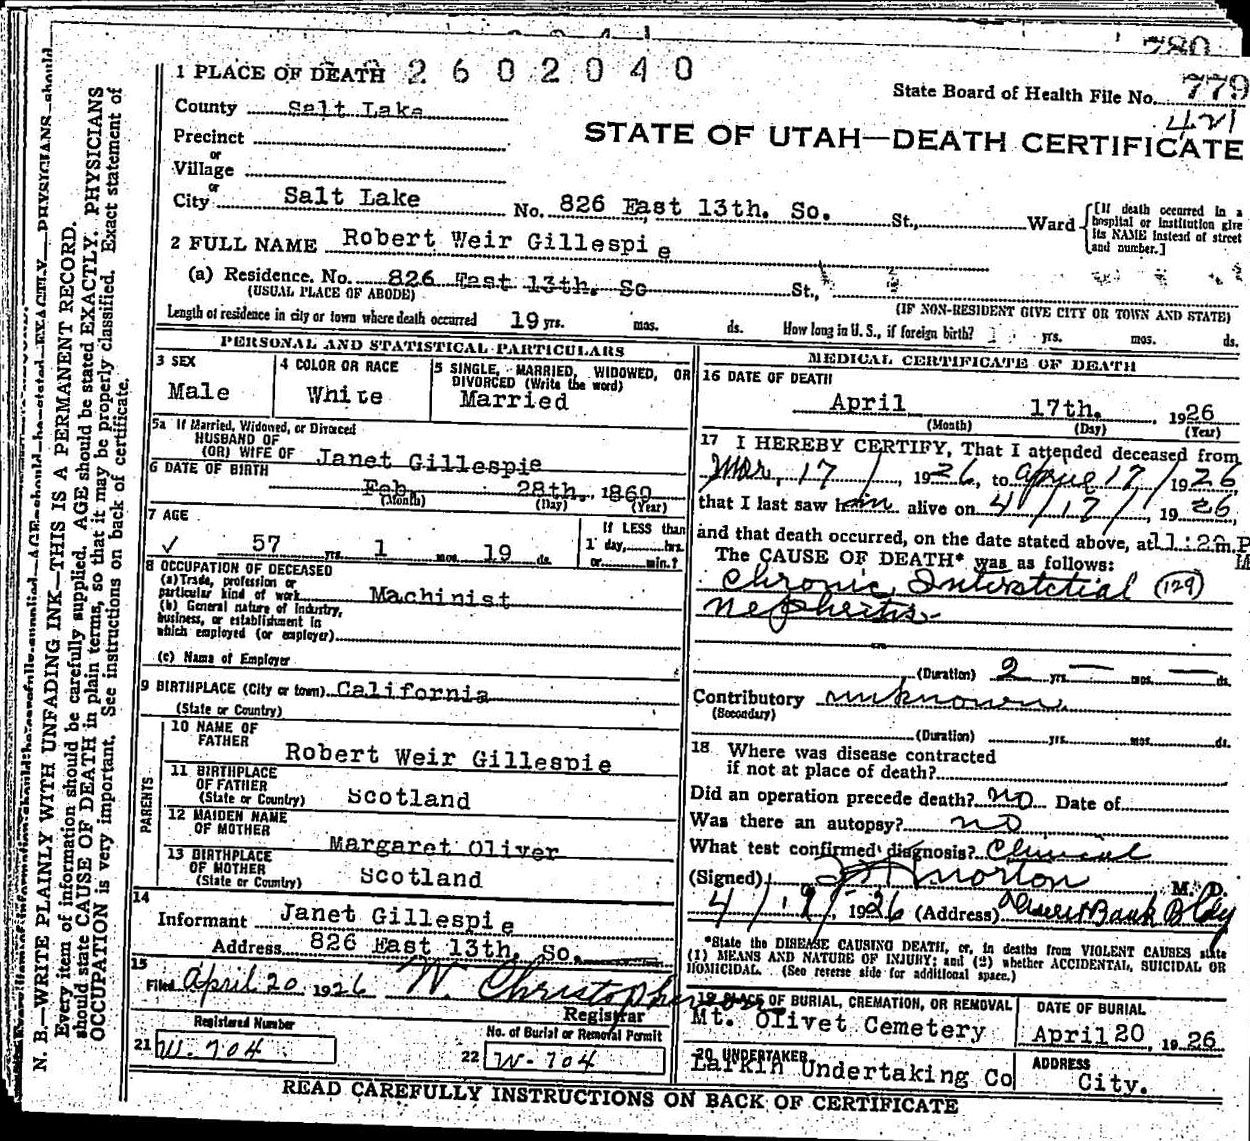 780
1 PLACE OF DEATH 2 6 0 2 0 4 0
State Board of Health File No. 779
421
County Salt Lake
STATE OF UTAH—DEATH CERTIFICATE
Precinct
or
Village
or
City Salt Lake No. 826 East 13th. So. St., Ward
[If death occurred in a hospital or institution give its NAME instead of street and number.]
2 FULL NAME Robert Weir Gillespie
(a) Residence. No. 826 East 13th. So St.,
(USUAL PLACE OF ABODE) (IF NON-RESIDENT GIVE CITY OR TOWN AND STATE)
Length of residence in city or town where death occurred 19 yrs. mos. ds. How long in U. S., if foreign birth? yrs. mos. ds.
PERSONAL AND STATISTICAL PARTICULARS
3 SEX
Male
4 COLOR OR RACE
White
5 SINGLE, MARRIED, WIDOWED, OR DIVORCED (Write the word)
Married
5a If Married, Widowed, or Divorced
HUSBAND OF
(OR) WIFE OF Janet Gillespie
6 DATE OF BIRTH
Feb. 28th. 1869
(Month) (Day) (Year)
7 AGE
57 yrs. 1 mos. 19 ds.
If LESS than
1 day, hrs.
or min.?
8 OCCUPATION OF DECEASED
(a) Trade, profession or
particular kind of work Machinist
(b) General nature of industry,
business, or establishment in
which employed (or employer)
(c) Name of Employer
9 BIRTHPLACE (City or town) California
(State or Country)
PARENTS
10 NAME OF FATHER
Robert Weir Gillespie
11 BIRTHPLACE OF FATHER
(State or Country) Scotland
12 MAIDEN NAME OF MOTHER
Margaret Oliver
13 BIRTHPLACE OF MOTHER
(State or Country) Scotland
14
Informant Janet Gillespie
Address 826 East 13th. So.
15
Filed April 20 1926 W. Christopherson
Registrar
Registered Number
21 W. 704
No. of Burial or Removal Permit
22 W-704
MEDICAL CERTIFICATE OF DEATH
16 DATE OF DEATH
April 17th. 1926
(Month) (Day) (Year)
17 I HEREBY CERTIFY, That I attended deceased from
Mar. 17 / 1926, to April 17 / 1926
that I last saw him alive on 4/17/, 1926,
and that death occurred, on the date stated above, at 11:20 m. P
M
The CAUSE OF DEATH* was as follows:
Chronic Interstitial (129)
Nephritis
(Duration) 2 yrs. — mos. — ds.
Contributory unknown
(Secondary)
(Duration) yrs. mos. ds.
18 Where was disease contracted
if not at place of death?
Did an operation precede death? no Date of
Was there an autopsy? no
What test confirmed diagnosis? Clinical
(Signed) Morton M. D.
4/19/ 1926 (Address) Deseret Bank Bldg
*State the DISEASE CAUSING DEATH, or, in deaths from VIOLENT CAUSES state
(1) MEANS AND NATURE OF INJURY; and (2) whether ACCIDENTAL, SUICIDAL OR
HOMICIDAL. (See reverse side for additional space.)
19 PLACE OF BURIAL, CREMATION, OR REMOVAL
Mt. Olivet Cemetery
DATE OF BURIAL
April 20, 1926
20 UNDERTAKER
Larkin Undertaking Co
ADDRESS
City.
READ CAREFULLY INSTRUCTIONS ON BACK OF CERTIFICATE
N. B.—WRITE PLAINLY WITH UNFADING INK—THIS IS A PERMANENT RECORD.
Every item of information should be carefully supplied. AGE should be stated EXACTLY. PHYSICIANS
should state CAUSE OF DEATH in plain terms, so that it may be properly classified. Exact statement of
OCCUPATION is very important. See instructions on back of certificate.